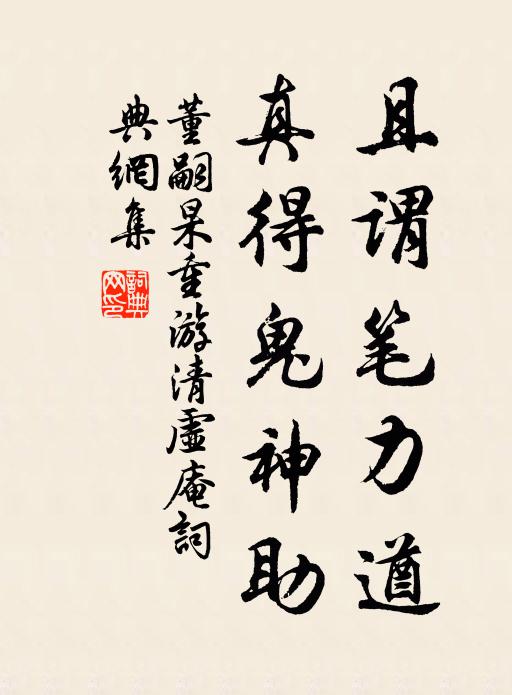 且谓笔力遒
真得鬼神助
董嗣杲重游清虛庵詞
典網集
詞典網印